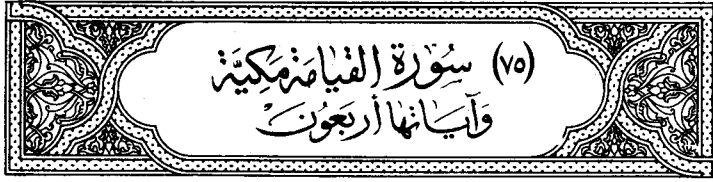 (٧٥) سُورَة القيَامَة مَكيَّة
وَآيَاتهَا أربَعُونَ